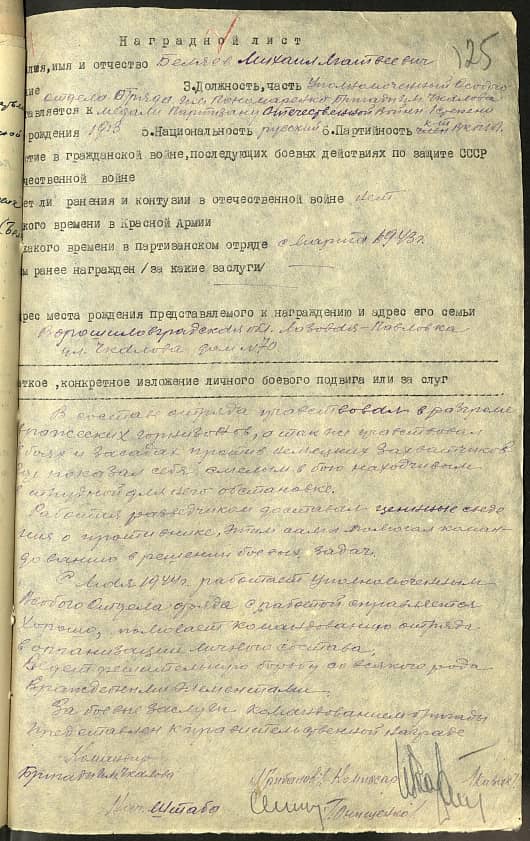 Наградной лист
125
илия, имя и отчество Беляев Михаил Матвеевич
ние 3.Должность, часть Уполномоченный Особого
отдела отряда им Пономаренко Бригады им. Чкалова
тавляется к медали Партизану Отечественной войны
рождения 1913 5.Национальность русский 6.Партийность
тие в гражданской войне, последующих боевых действиях по защите СССР
чественной войне
ет ли ранения и контузии в отечественной войне нет
кого времени в Красной Армии
какого времени в партизанском отряде с марта 1943 г.
м ранее награжден /за какие заслуги/
рес места рождения представляемого к награждению и адрес его семьи
Ворошиловградская обл. Лозовая-Павловка
ул. Чкалова дом №70
аткое, конкретное изложение личного боевого подвига или за слуг
В составе отряда участвовал в разгроме
вражеских гарнизонов, а так же участвовал
боях и засадах против немецких захватчиков
где показал себя смелым в бою находчивым
в трудной для него обстановке.
Работая разведчиком доставал ценные сведе
ния о противнике, этим самым помогал коман-
дованию в решении боевых задач.
С мая 1944 г. работает уполномоченным
Особого Отдела отряда с работой справляется
хорошо, помогает командованию отряда
в организации личного состава,
Ведет решительную борьбу со всякого рода
враждебными элементами
За боевые заслуги командованием бригады
представлен к правительственной награде
Командир
Бригады им. Чкалова Грибанов Комиссар
Нач. Штаба Грищенко